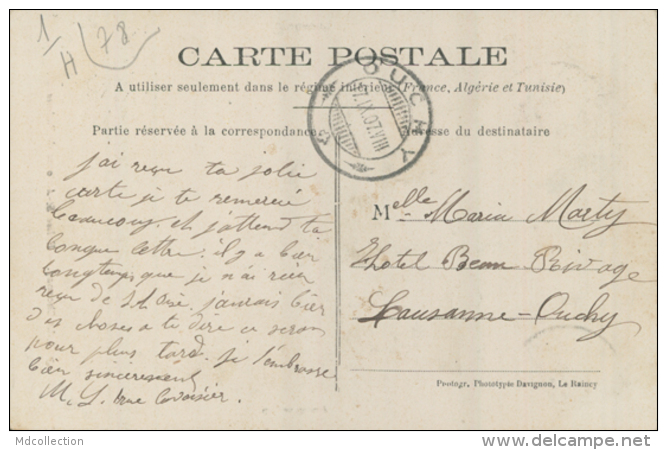 1/H 78
CARTE POSTALE
A utiliser seulement dans le régime intérieur (France, Algérie et Tunisie)
OUCHY
7.IX.07.VIII
Partie réservée à la correspondance
Adresse du destinataire
j'ai reçu ta jolie
carte je te remercie
beaucoup. et j'attend ta
longue lettre. il y a bien
longtemps que je n'ai rien
reçu de
bien
des choses a te dire ce sera
pour plus tard. je t'embrasse
bien sincerement
M. L. rue Lavoisier.
Melle Maria Marty
Hotel Beau Rivage
Lausanne-Ouchy
Photogr. Phototypie Davignon, Le Raincy
Mdcollection
www.delcampe.net